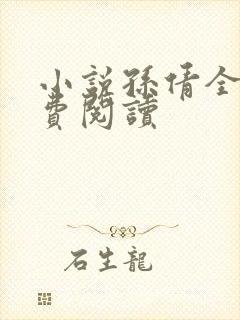 小說孫倩全
費閱讀
石生龍